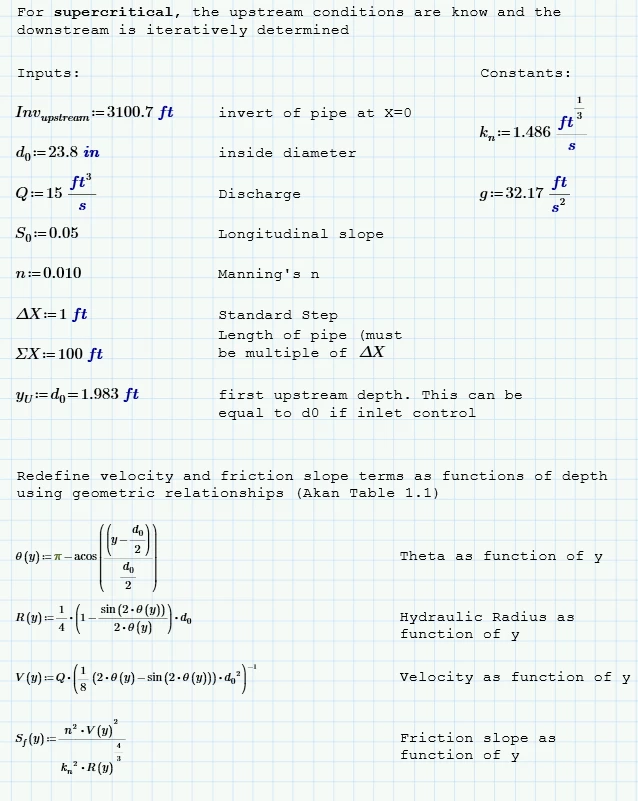 For supercritical, the upstream conditions are know and the
downstream is iteratively determined
Inputs:
Constants:
Inv_upstream:=3100.7 ft
invert of pipe at X=0
k_n:=1.486 ft^(1/3)/s
d_0:=23.8 in
inside diameter
Q:=15 ft^3/s
Discharge
g:=32.17 ft/s^2
S_0:=0.05
Longitudinal slope
n:=0.010
Manning's n
ΔX:=1 ft
Standard Step
ΣX:=100 ft
Length of pipe (must
be multiple of ΔX
y_U:=d_0=1.983 ft
first upstream depth. This can be
equal to d0 if inlet control
Redefine velocity and friction slope terms as functions of depth
using geometric relationships (Akan Table 1.1)
θ(y):=π−acos((y−d_0/2)/(d_0/2))
Theta as function of y
R(y):=1/4·(1−sin(2·θ(y))/(2·θ(y)))·d_0
Hydraulic Radius as
function of y
V(y):=Q·(1/8 (2·θ(y)−sin(2·θ(y)))·d_0^2)^−1
Velocity as function of y
S_f(y):=n^2·V(y)^2/(k_n^2·R(y)^(4/3))
Friction slope as
function of y